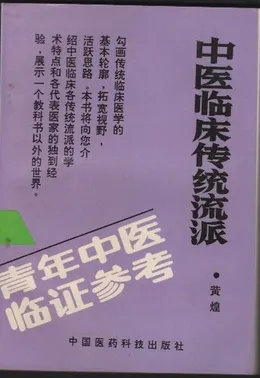 中医临床传统流派
·黄煌
勾画传统临床医学的
基本轮廓，拓宽视野，
活跃思路。本书将向您介
绍中医临床各传统流派的学
术特点和各代表医家的独到经
验，展示一个教科书以外的世界。
青年中医
临证参考
中国医药科技出版社